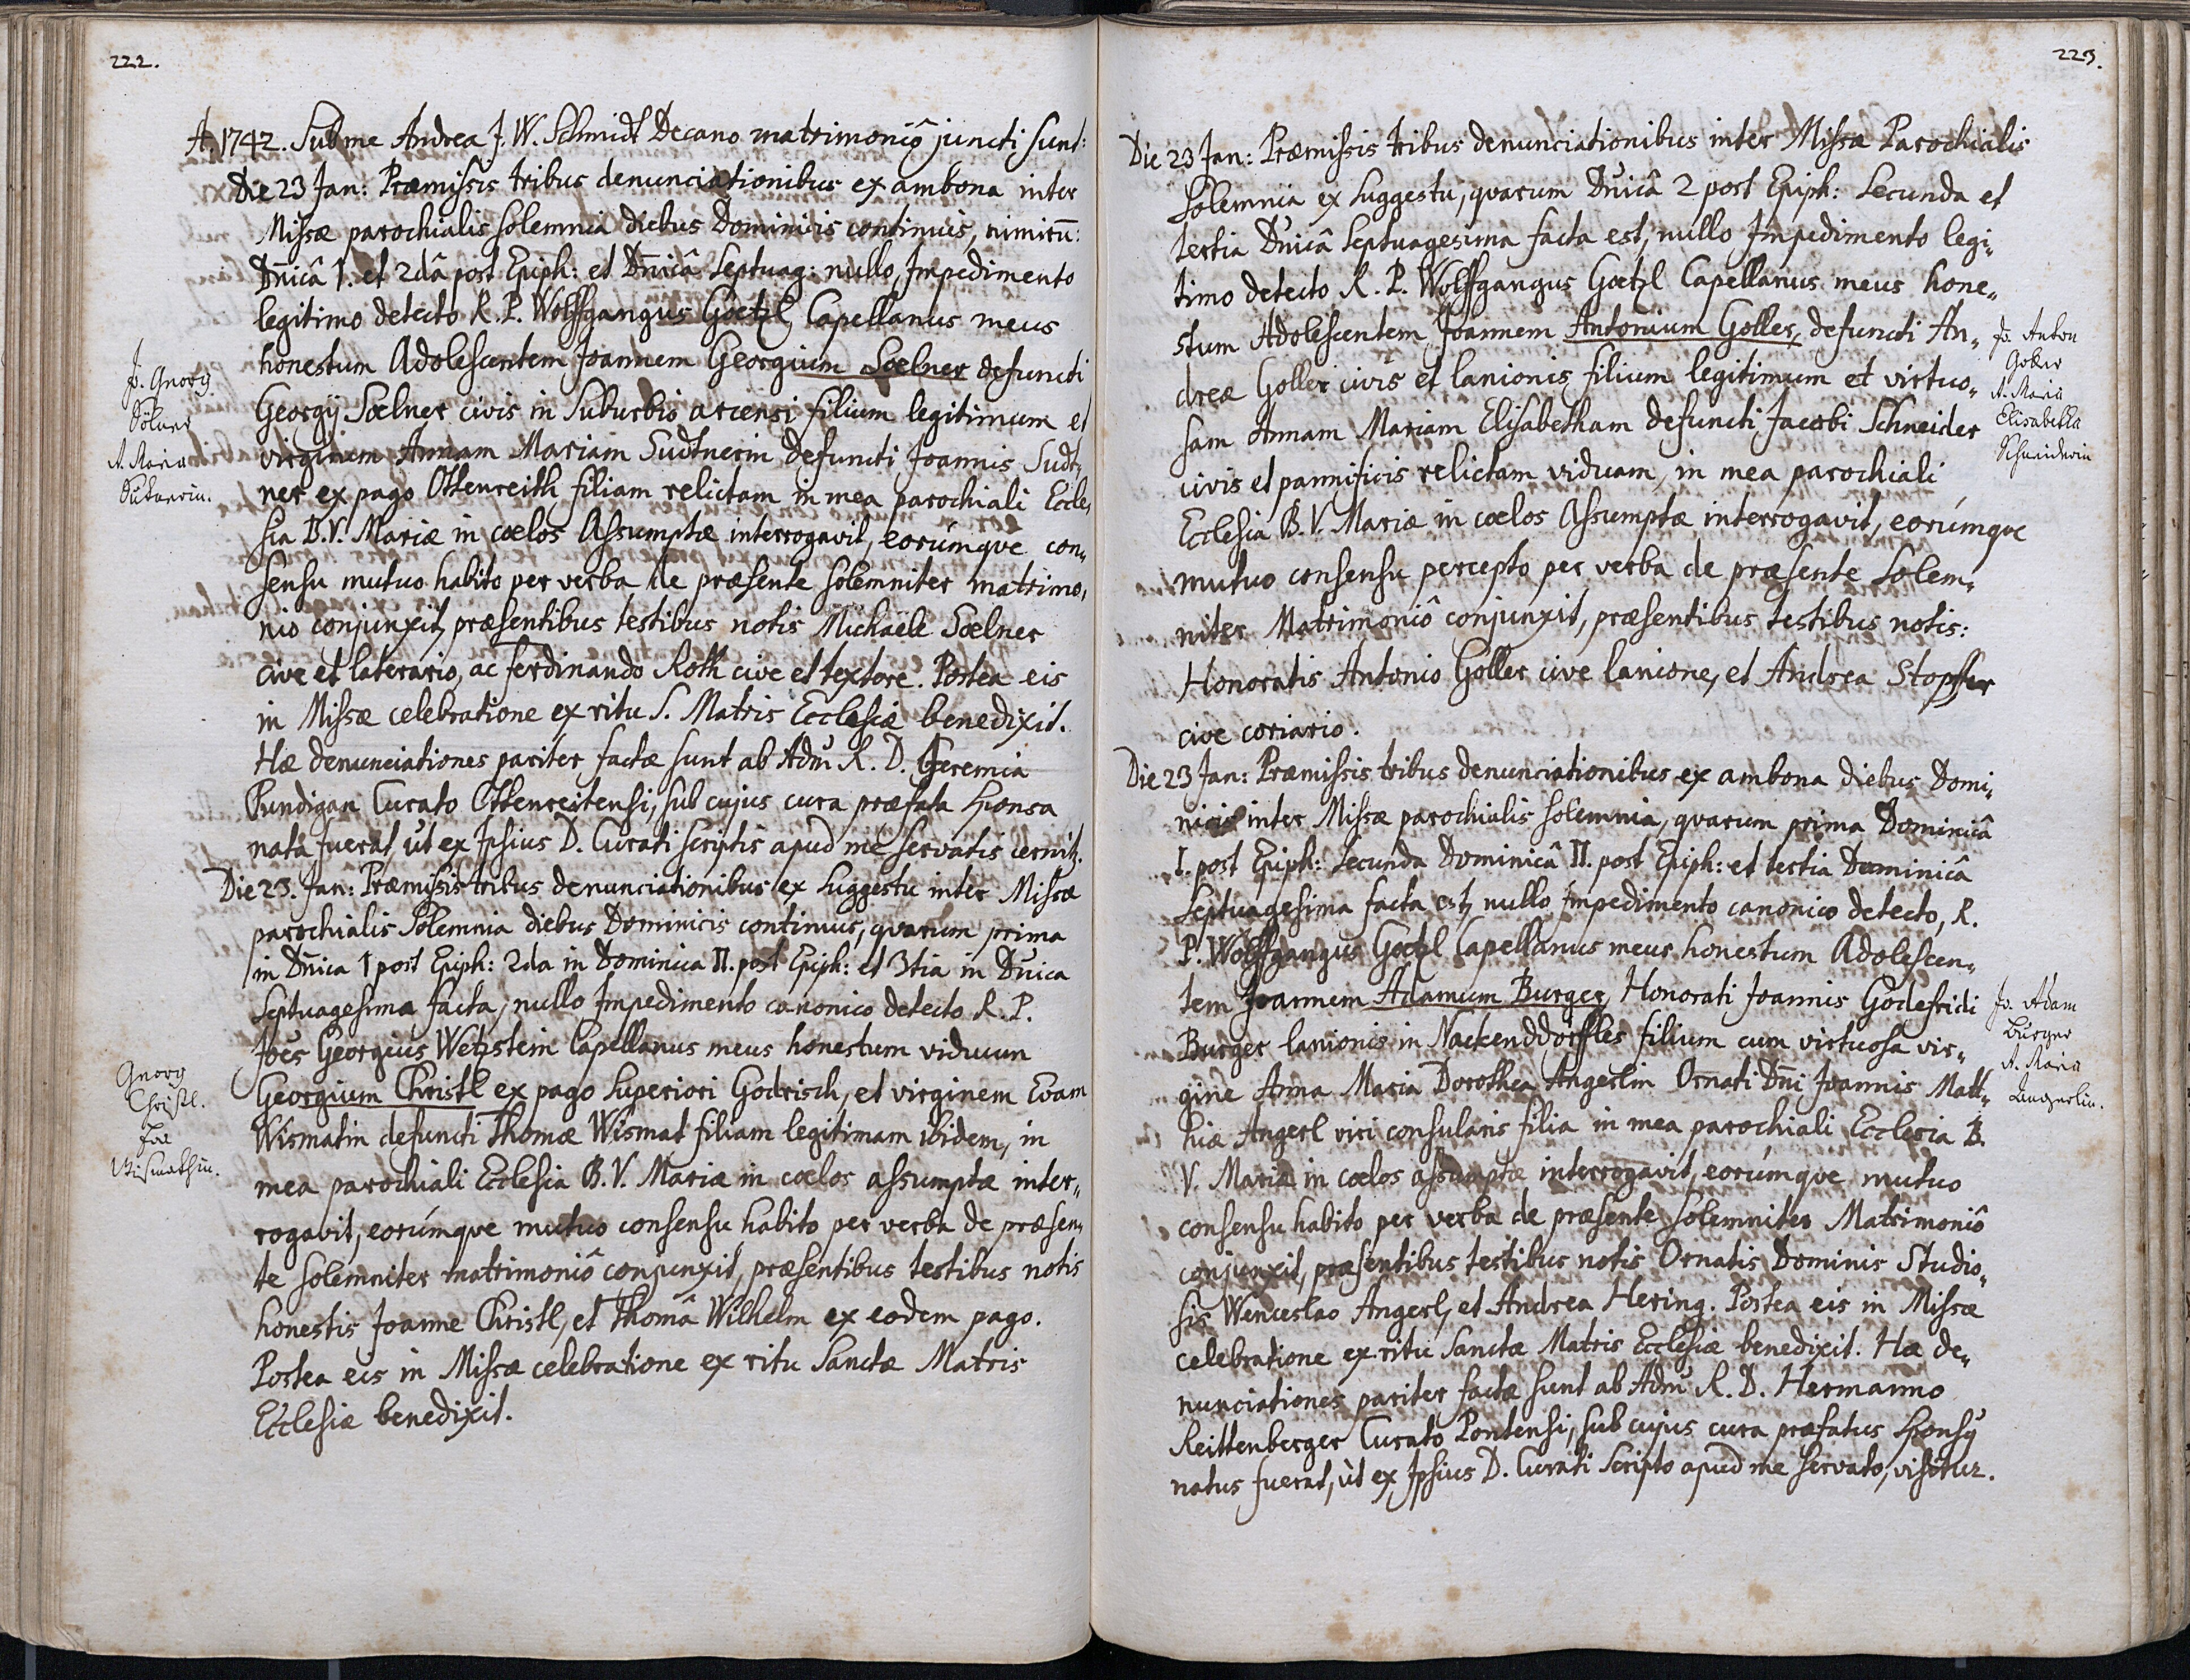 222.
A. 1742. Sub me Andrea J. W. Schmidt Decano matrimoniô juncti sunt:
Die 23 Jan: Præmissis tribus denunciationibus ex ambona inter
Missæ parochialis solemnia diebus Dominicis continuis, nimirū:
Dn̄icâ 1. et 2dâ post Epiph: et Dn̄icâ Septuag: nullo Impedimento
legitimo detecto R. P. Wolffgangus Goetzl Capellanus meus
honestum Adolescentem Joannem Georgium Soelner defuncti
Georgij Soelner civis in Suburbio arcensi filium legitimum et
virginem Annam Mariam Sudtnerin defuncti Joannis Sudt,
ner ex pago Ottenreith filiam relictam in mea parochiali Eccle,
sia B. V. Mariæ in coelos Assumptæ interrogavit, eorúmque con,
sensu mutuo habito per verba de præsente solemniter matrimo,
nio conjunxit, præsentibus testibus notis Michaële Soelner
cive et laterario, ac ferdinando Roth cive et textore. Postea eis
in Missæ celebratione ex ritu S. Matris Ecclesiæ benedixit.
Hæ denunciationes pariter factæ sunt ab Adm̄ R. D. Geremia
Pundigan Curato Ottenreitensi, sub cujus cura præfata sponsa
nata fuerat ut ex Ipsius D. Curati scriptis apud me servatis cernit.
Jo. Georg
Sölner
A. Maria
Sutnerin.
Die 23. Jan: Præmissis tribus denunciationibus ex suggestu inter Missæ
parochialis Solemnia diebus Dominicis continuis, quarum prima
in Dn̄ica 1 post Epiph: 2da in Dominica II. post Epiph: et 3tia in Dn̄ica
Septuagesima facta, nullo Impedimento canonico detecto R. P.
Joēs Georgius Wetzstein Capellanus meus honestum viduum
Georgium Christl ex pago Superiori Godrisch, et virginem Evam
Wismatin defuncti Thomæ Wismat filiam legitimam ibidem, in
mea parochiali Ecclesia B. V. Mariæ in coelos assumptæ inter,
rogavit, eorúmque mutuo consensu habito per verba de præsen,
te solemniter matrimoniô conjunxit, præsentibus testibus notis
honestis Joanne Christl, et Thomâ Wilhelm ex eodem pago.
Postea eis in Missæ celebratione ex ritu Sanctæ Matris
Ecclesiæ benedixit.
Georg
Christl.
Eva
Wismathin.
223.
Die 23 Jan: Præmissis tribus denunciationibus inter Missæ Parochialis
Solemnia ex suggestu, quarum Dn̄icâ 2 post Epiph: secunda et
tertia Dn̄icâ Septuagesima facta est, nullo Impedimento legi,
timo detecto R. P. Wolffgangus Goetzl Capellanus meus hone,
stum Adolescentem Joannem Antonium Goller, defuncti An,
dreæ Goller civis et lanionis filium legitimum et virtuo,
sam Annam Mariam Elisabetham defuncti Jacobi Schneider
civis et pannificis relictam viduam, in mea parochiali
Ecclesia B. V. Mariæ in coelos Assumptæ interrogavit, eorúmque
mutuo consensu percepto per verba de præsente Solem,
niter Matrimoniô conjunxit, præsentibus testibus notis:
Honoratis Antonio Goller cive lanione, et Andrea Stopfer
cive coriario.
Jo. Anton
Goler
A. Maria
Elisabetha
Schneiderin
Die 23 Jan: Præmissis tribus denunciationibus ex ambona diebus Domi,
nicis inter Missæ parochialis solemnia, quarum prima Dominicâ
I. post Epiph: secunda Dominicâ II. post Epiph: et tertia Dominicâ
Septuagesima facta est, nullo Impedimento canonico detecto, R.
P. Wolffgangus Goetzl Capellanus meus honestum Adolescen,
tem Joannem Adamum Burger, Honorati Joannis Godefridi
Burger lanionis in Nackenddörffles filium cum virtuosa vir,
gine Anna Maria Dorothea Angerlin Ornati Dn̄i Joannis Matt,
hiæ Angerl viri consularis filia in mea parochiali Ecclesia B.
V. Mariæ in coelos assumptæ interrogavit, eorúmque mutuo
consensu habito per verba de præsente solemniter Matrimoniô
conjunxit, præsentibus testibus notis Ornatis Dominis Studio,
sis Wenceslao Angerl, et Andrea Hering. Postea eis in Missæ
celebratione ex ritu Sanctæ Matris Ecclesiæ benedixit. Hæ de,
nunciationes pariter factæ sunt ab Adm̄ R. D. Hermanno
Reittenberger Curato Pontensi, sub cujus cura præfatus Sponsq
natus fuerat, ùt ex Ipsius D. Curati Scripto apud me servato, visitur.
Jo. Adam
Burger
A. Maria
Angerlin.